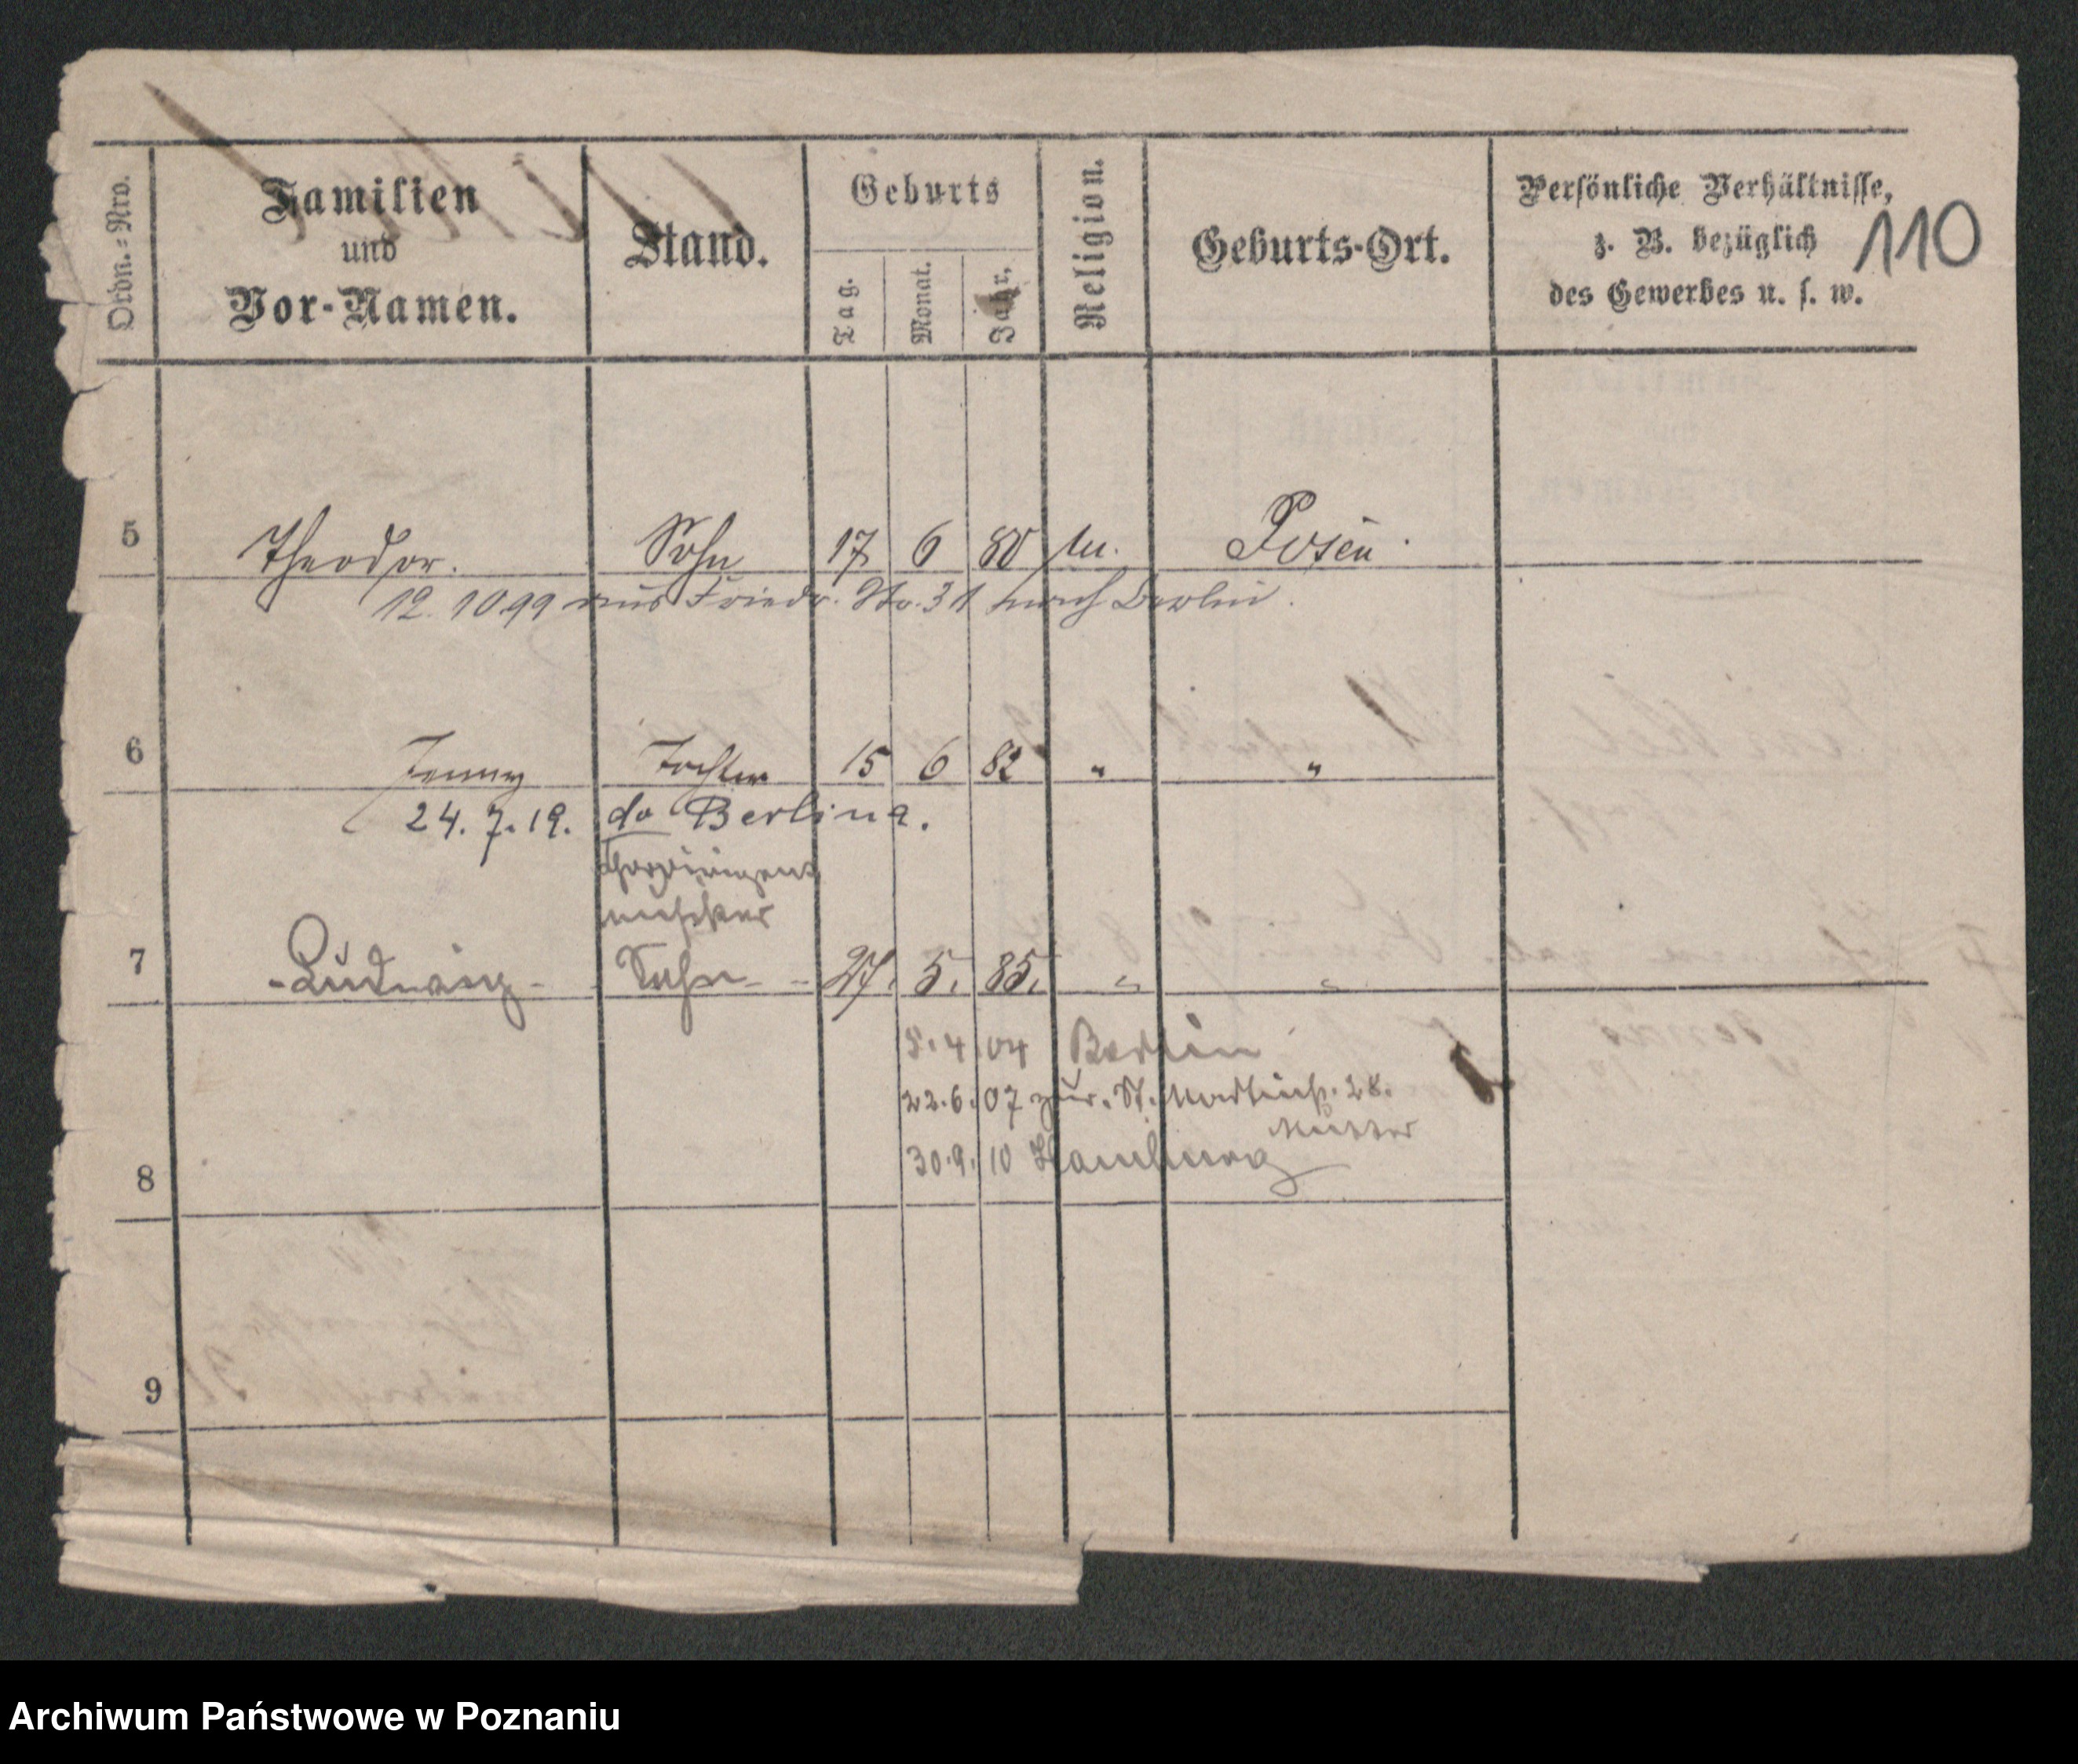 Ordn.=Nro.
Familien
und
Vor-Namen.
Stand.
Geburts
Tag.
Monat.
Jahr.
Religion.
Geburts-Ort.
Persönliche Verhältnisse,
z. B. bezüglich
des Gewerbes u. s. w.
110
5 Theodor. Sohn 17 6 80 Posen
12.10.99 aus Friedr. Str. 31 nach Berlin.
6 Jenny Tochter 15 6 82 " "
24.7.19. do Berlina.
Chordirigent
Musiker
7 -Ludwig- Sohn 27. 5. 85. " "
5.4.04 Berlin
22.6.07 zur. St. Martinstr. 28.
Mutter
30.9.10 Hamburg
8
9
Archiwum Państwowe w Poznaniu